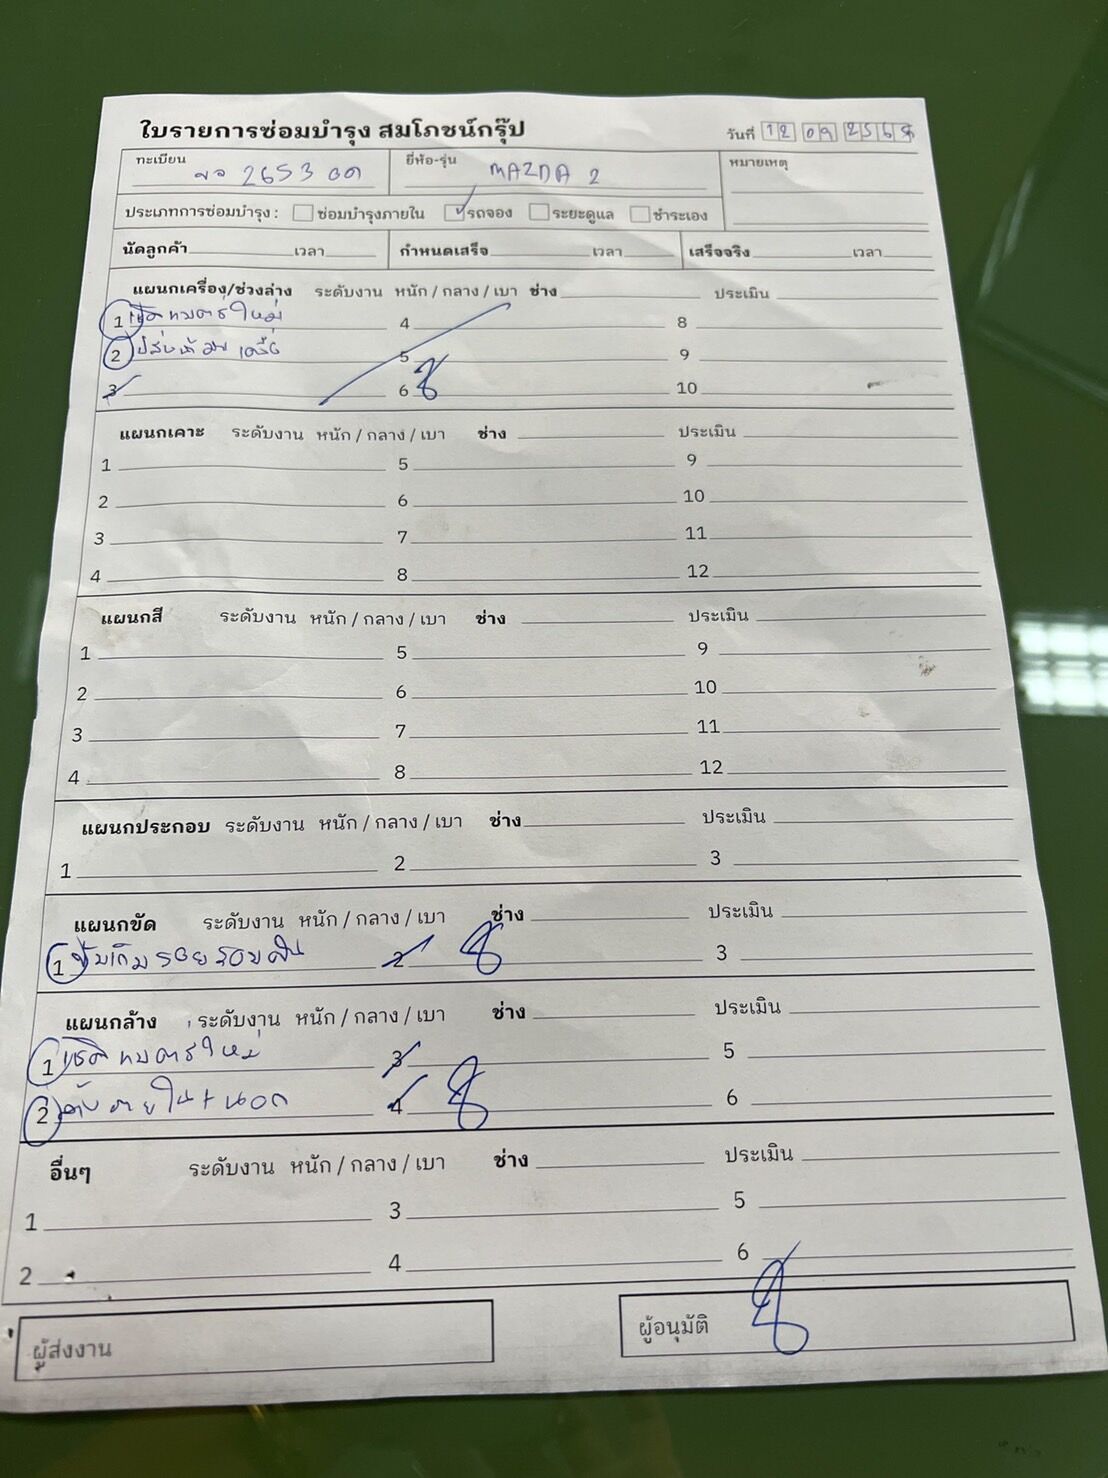 ใบรายการซ่อมบำรุง สมโภชน์กรุ๊ป
วันที่ 12 09 256
ทะเบียน 2653 ยี่ห้อ-รุ่น MAZDA 2 หมายเหตุ
ประเภทการซ่อมบำรุง : ซ่อมบำรุงภายใน รถจอง ระยะดูแล ชำระเอง
นัดลูกค้า เวลา กำหนดเสร็จ เวลา เสร็จจริง เวลา
แผนกเครื่อง/ช่วงล่าง ระดับงาน หนัก / กลาง / เบา ช่าง ประเมิน
1 เช็ค ใหม่ 4 8
2 5 9
3 6 10
แผนกเคาะ ระดับงาน หนัก / กลาง / เบา ช่าง ประเมิน
1 5 9
2 6 10
3 7 11
4 8 12
แผนกสี ระดับงาน หนัก / กลาง / เบา ช่าง ประเมิน
1 5 9
2 6 10
3 7 11
4 8 12
แผนกประกอบ ระดับงาน หนัก / กลาง / เบา ช่าง ประเมิน
1 2 3
แผนกขัด ระดับงาน หนัก / กลาง / เบา ช่าง ประเมิน
1 2 3
แผนกล้าง ระดับงาน หนัก / กลาง / เบา ช่าง ประเมิน
1 เช็ค ใหม่ 3 5
2 ล้าง ภายใน + นอก 4 6
อื่นๆ ระดับงาน หนัก / กลาง / เบา ช่าง ประเมิน
1 3 5
2 4 6
ผู้ส่งงาน ผู้อนุมัติ